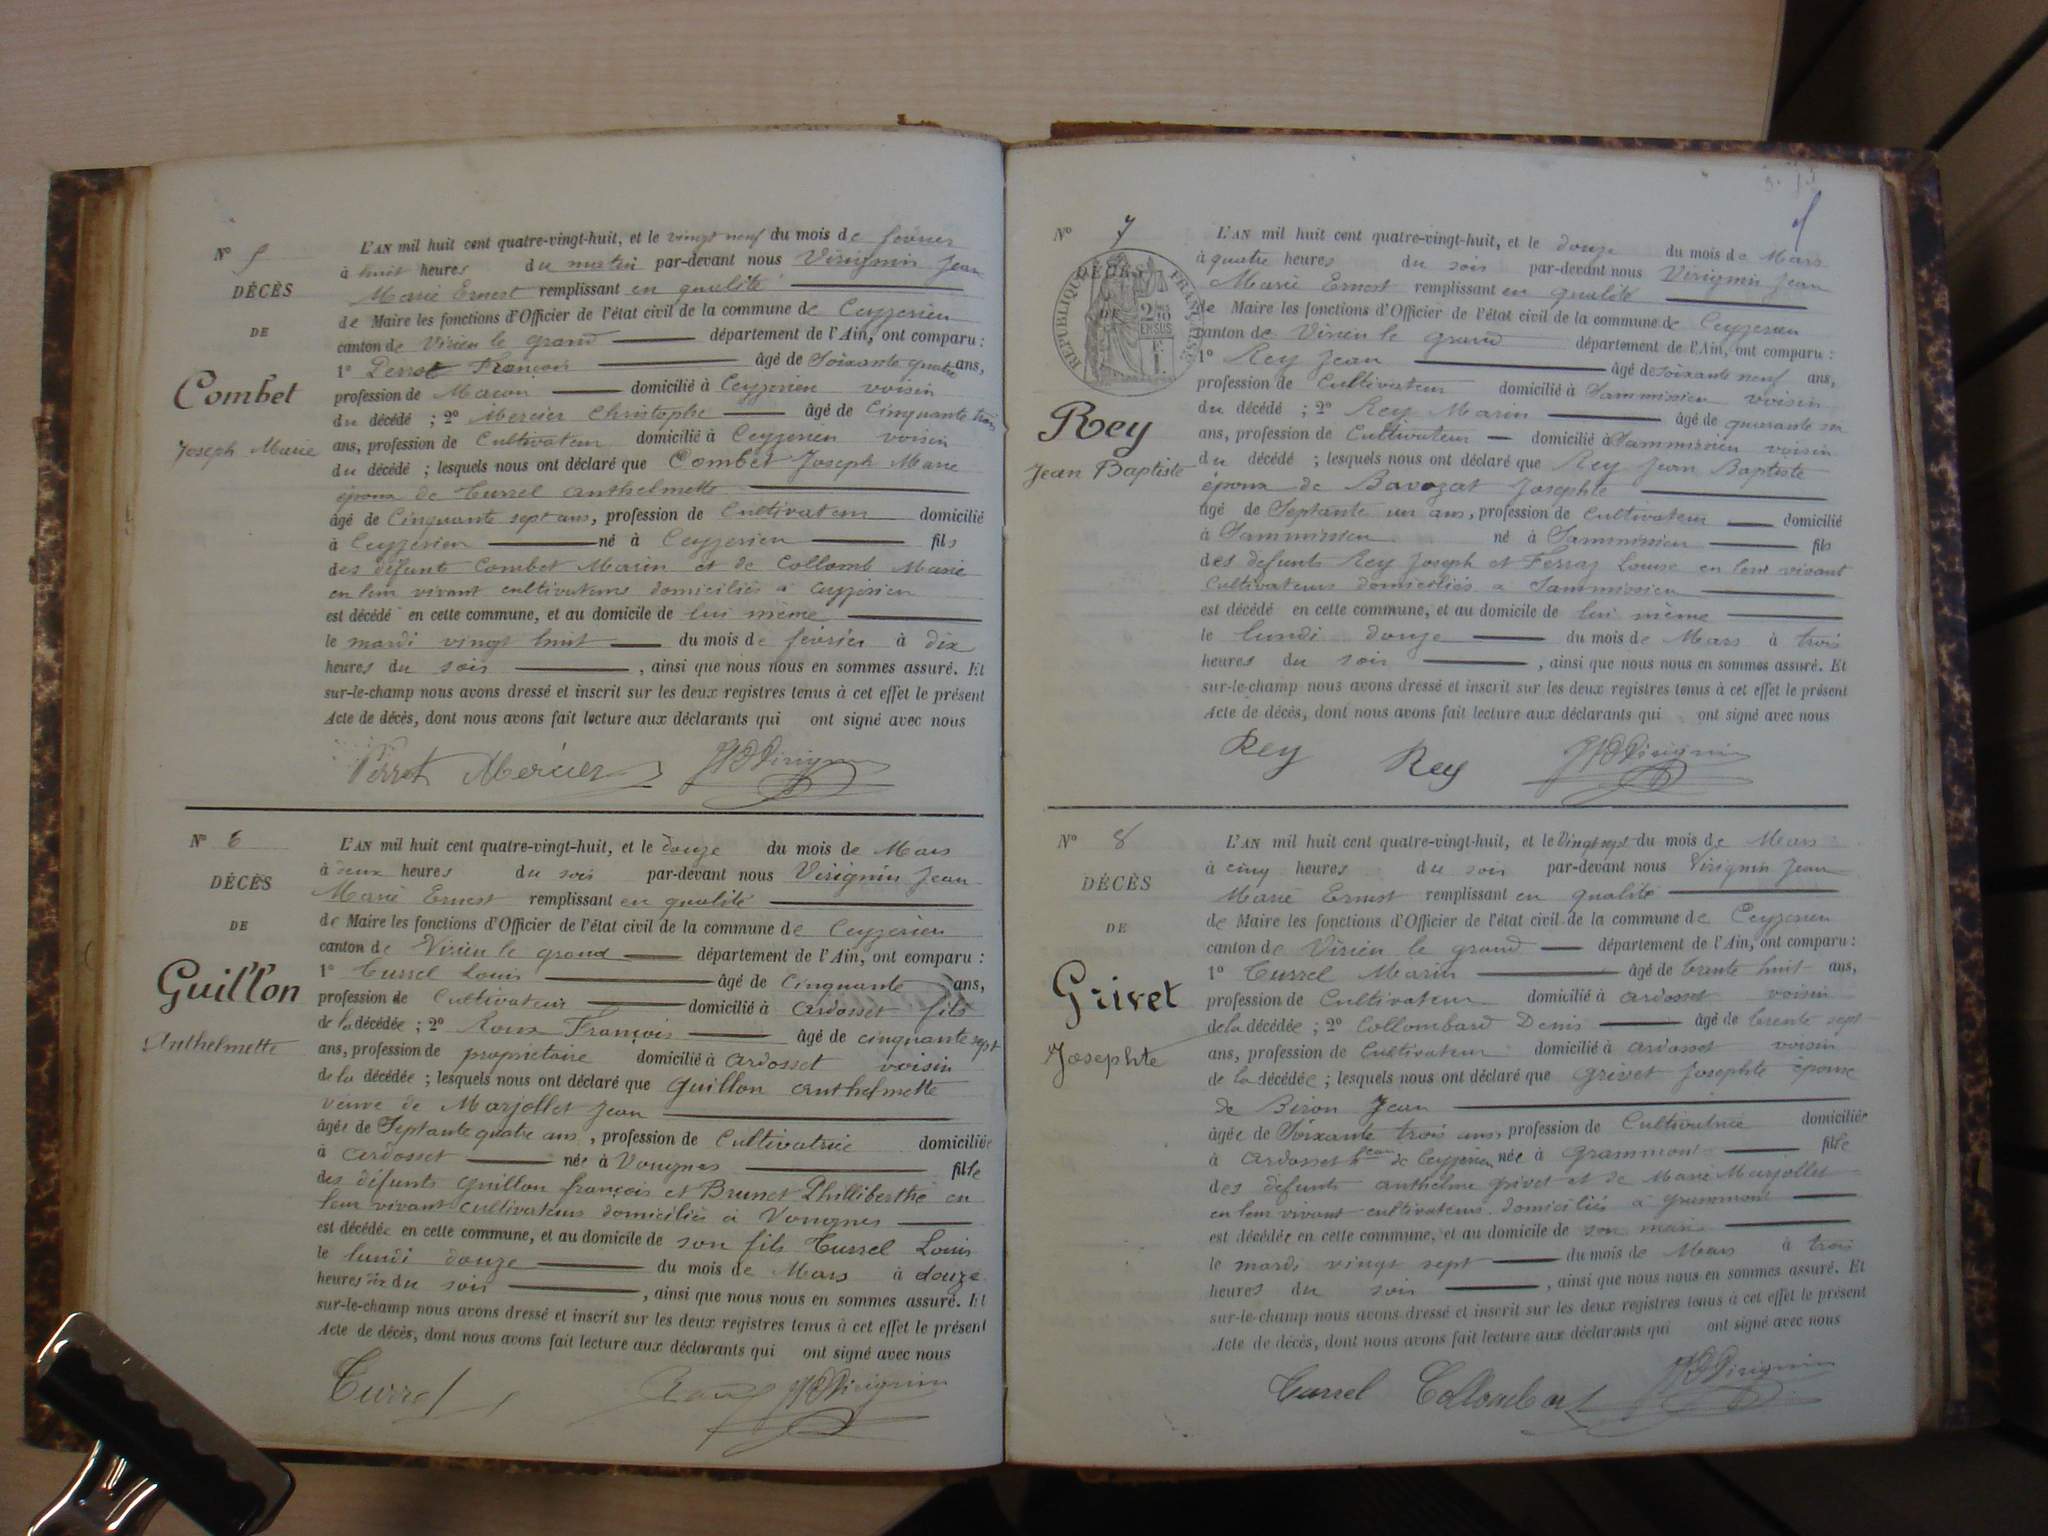 N° 5
DÉCÈS
DE
Combet
Joseph Marie
L'AN mil huit cent quatre-vingt-huit, et le vingt neuf du mois de février
à huit heures du matin par-devant nous Virignin Jean
Marie Ernest remplissant en qualité
de Maire les fonctions d'Officier de l'état civil de la commune de Ceyzerieu
canton de Virieu le grand département de l'Ain, ont comparu :
1° Perret François âgé de Soixante quatre ans,
profession de Maçon domicilié à Ceyzerieu voisin
du décédé ; 2° Mercier Christophe âgé de Cinquante trois
ans, profession de Cultivateur domicilié à Ceyzerieu voisin
du décédé ; lesquels nous ont déclaré que Combet Joseph Marie
époux de Turrel Anthelmette
âgé de Cinquante sept ans, profession de Cultivateur domicilié
à Ceyzerieu né à Ceyzerieu fils
des défunts Combet Marin et de Collomb Marie
en leur vivant cultivateurs domiciliés à Ceyzerieu
est décédé en cette commune, et au domicile de lui même
le mardi vingt huit du mois de février à dix
heures du soir , ainsi que nous nous en sommes assuré. Et
sur-le-champ nous avons dressé et inscrit sur les deux registres tenus à cet effet le présent
Acte de décès, dont nous avons fait lecture aux déclarants qui ont signé avec nous
Perret Mercier Virignin
N° 6
DÉCÈS
DE
Guillon
Anthelmette
L'AN mil huit cent quatre-vingt-huit, et le douze du mois de Mars
à deux heures du soir par-devant nous Virignin Jean
Marie Ernest remplissant en qualité
de Maire les fonctions d'Officier de l'état civil de la commune de Ceyzerieu
canton de Virieu le grand département de l'Ain, ont comparu :
1° Turrel Louis âgé de Cinquante ans,
profession de Cultivateur domicilié à Ardosset fils
de la décédée ; 2° Roux François âgé de cinquante sept
ans, profession de propriétaire domicilié à Ardosset voisin
de la décédée ; lesquels nous ont déclaré que Guillon Anthelmette
veuve de Marjollet Jean
âgée de Septante quatre ans, profession de Cultivatrice domiciliée
à Ardosset née à Vongnes fille
des défunts Guillon françois et Brunet Philliberthe en
leur vivant cultivateurs domiciliés à Vongnes
est décédée en cette commune, et au domicile de son fils Turrel Louis
le lundi douze du mois de Mars à douze
heures du soir , ainsi que nous nous en sommes assuré. Et
sur-le-champ nous avons dressé et inscrit sur les deux registres tenus à cet effet le présent
Acte de décès, dont nous avons fait lecture aux déclarants qui ont signé avec nous
Turrel Roux Virignin
N° 7
RÉPUBLIQUE FRANÇAISE
Rey
Jean Baptiste
L'AN mil huit cent quatre-vingt-huit, et le douze du mois de Mars
à quatre heures du soir par-devant nous Virignin Jean
Marie Ernest remplissant en qualité
de Maire les fonctions d'Officier de l'état civil de la commune de Ceyzerieu
canton de Virieu le grand département de l'Ain, ont comparu :
1° Rey Jean âgé de soixante neuf ans,
profession de Cultivateur domicilié à Sammissieu voisin
du décédé ; 2° Rey Marin âgé de quarante six
ans, profession de Cultivateur domicilié à Sammissieu voisin
du décédé ; lesquels nous ont déclaré que Rey Jean Baptiste
époux de Bavozat Josephte
âgé de Septante un ans, profession de Cultivateur domicilié
à Sammissieu né à Sammissieu fils
des defunts Rey Joseph et Ferraz Louise en leur vivant
Cultivateurs domiciliés à Sammissieu
est décédé en cette commune, et au domicile de lui même
le lundi douze du mois de Mars à trois
heures du soir , ainsi que nous nous en sommes assuré. Et
sur-le-champ nous avons dressé et inscrit sur les deux registres tenus à cet effet le présent
Acte de décès, dont nous avons fait lecture aux déclarants qui ont signé avec nous
Rey Rey Virignin
N° 8
DÉCÈS
DE
Grivet
Josephte
L'AN mil huit cent quatre-vingt-huit, et le Vingt sept du mois de Mars
à cinq heures du soir par-devant nous Virignin Jean
Marie Ernest remplissant en qualité
de Maire les fonctions d'Officier de l'état civil de la commune de Ceyzerieu
canton de Virieu le grand département de l'Ain, ont comparu :
1° Turrel Marin âgé de trente huit ans,
profession de Cultivateur domicilié à Ardosset voisin
de la décédée ; 2° Collombard Denis âgé de trente sept
ans, profession de Cultivateur domicilié à Ardosset voisin
de la décédée ; lesquels nous ont déclaré que Grivet Josephte épouse
de Biron Jean
âgée de Soixante trois ans, profession de Cultivatrice domiciliée
à Ardosset heau de Ceyzerieu née à Grammont fille
des défunts Anthelme Grivet et de Marie Marjollet
en leur vivant cultivateurs domiciliés à Grammont
est décédée en cette commune, et au domicile de son mari
le mardi vingt sept du mois de Mars à trois
heures du soir , ainsi que nous nous en sommes assuré. Et
sur-le-champ nous avons dressé et inscrit sur les deux registres tenus à cet effet le présent
Acte de décès, dont nous avons fait lecture aux déclarants qui ont signé avec nous
Turrel Collombard Virignin